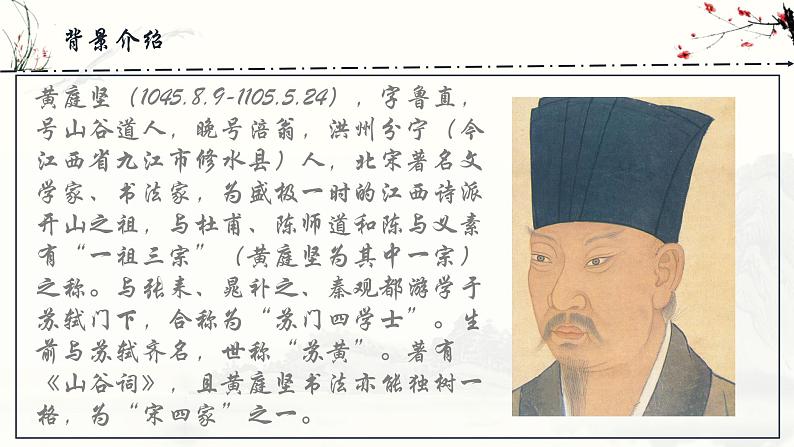 背景介绍
黄庭坚（1045.8.9-1105.5.24），字鲁直，
号山谷道人，晚号涪翁，洪州分宁（今
江西省九江市修水县）人，北宋著名文
学家、书法家，为盛极一时的江西诗派
开山之祖，与杜甫、陈师道和陈与义素
有“一祖三宗”（黄庭坚为其中一宗）
之称。与张耒、晁补之、秦观都游学于
苏轼门下，合称为“苏门四学士”。生
前与苏轼齐名，世称“苏黄”。著有
《山谷词》，且黄庭坚书法亦能独树一
格，为“宋四家”之一。